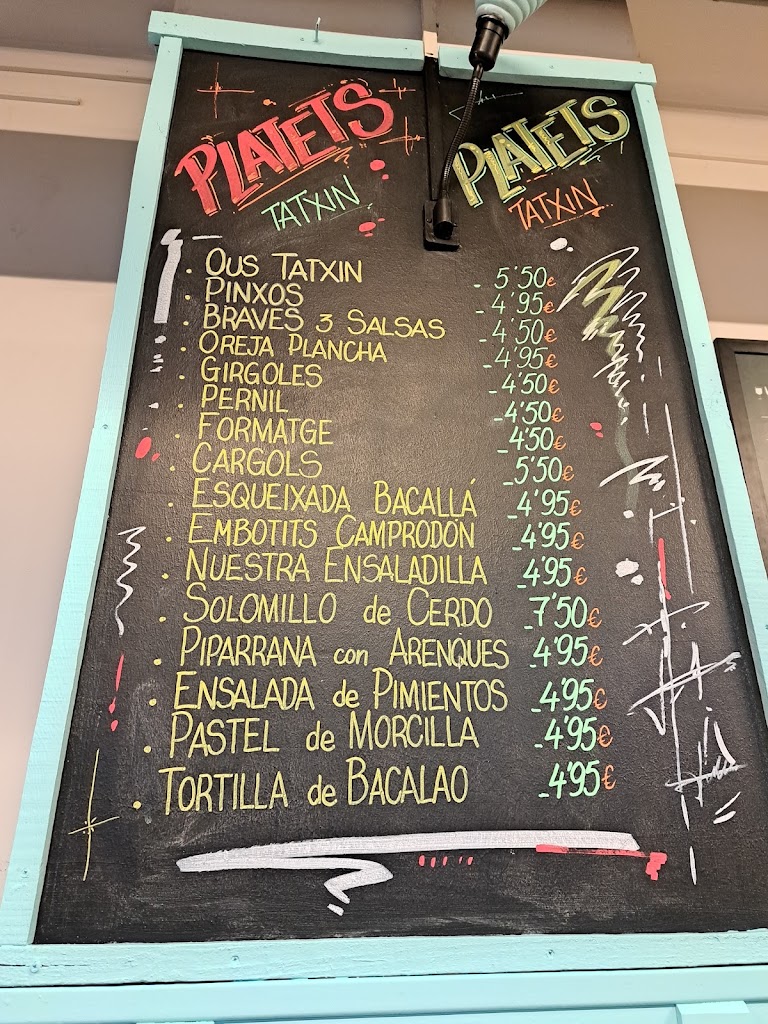 PLATETS PLATETS
TATXIN TATXIN
. OUS TATXIN - 5'50€
. PINXOS - 4'95€
. BRAVES 3 SALSAS - 4'50€
. OREJA PLANCHA - 4'95€
. GIRGOLES - 4'50€
. PERNIL - 4'50€
. FORMATGE - 4'50€
. CARGOLS - 5'50€
. ESQUEIXADA BACALLÁ - 4'95€
. EMBOTITS CAMPRODÓN - 4'95€
. NUESTRA ENSALADILLA - 4'95€
. SOLOMILLO de CERDO - 7'50€
. PIPARRANA con ARENQUES - 4'95€
. ENSALADA de PIMIENTOS - 4'95€
. PASTEL de MORCILLA - 4'95€
. TORTILLA de BACALAO - 4'95€